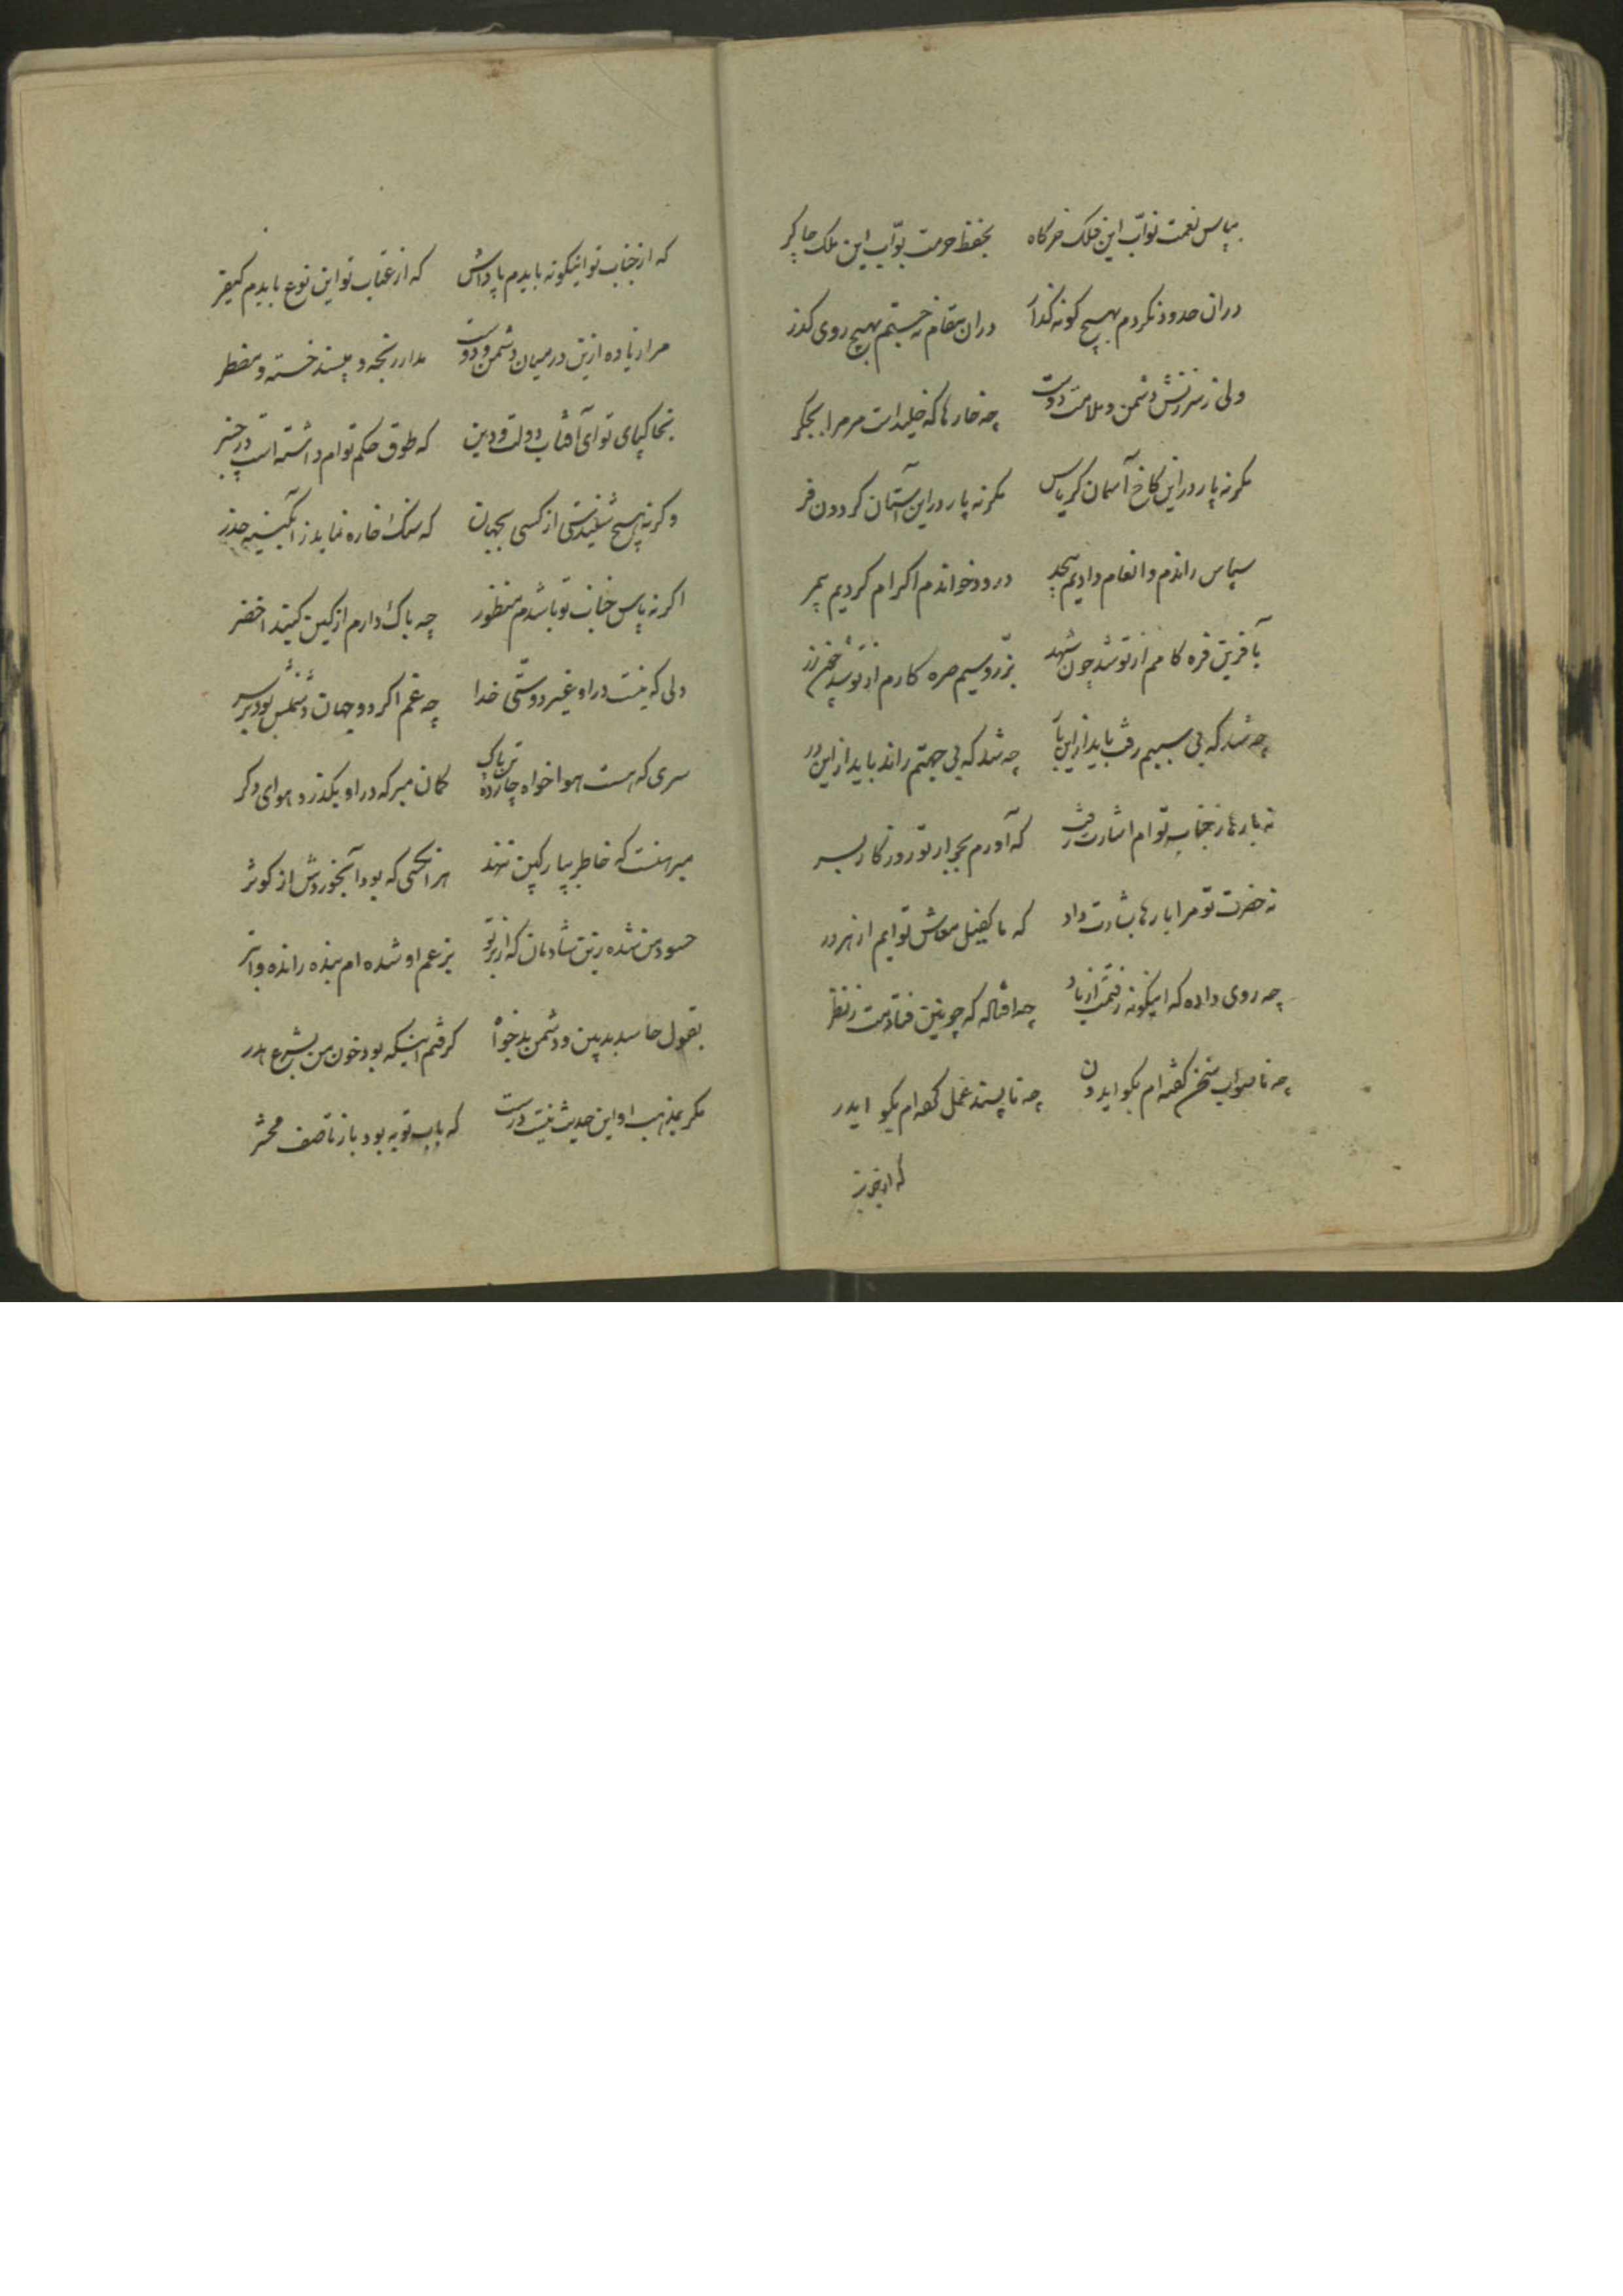 بپاس نعمت نواب این فلک خرگاه بحفظ حرمت بواب این ملک چاکر
در ان حدود نکردم بهیچ گونه گذار در ان مقام نه جستم بهیچ روی گذر
ولی ز سرزنش دشمن و ملامت دوست چه خارها که خلیدست مر مرا بجگر
مگر نه پار در این کاخ آسمان کریاس مگر نه پار در این آستان گردون فر
سپاس راندم و انعام دادیم بیحد درود خواندم اکرام کردیم بیمر
بآفرین فره کامم از تو شد چون شهد بزر و سیم صره کارم از تو شد چون زر
چه شد که بی سببم رفت باید از این باب چه شد که بی جهتم راند باید از این در
نه بارها ز جناب تو ام اشارت رفت که آورم بجوار تو روزگار بسر
نه حضرت تو مرا بارها بشارت داد که ما کفیل معاش توایم از هر در
چه روی داده که اینگونه رفتمت از یاد چه اوفتاده که چونین فتادمت ز نظر
چه ناصواب سخن گفته ام بگو ایدون چه ناپسند عمل کرده ام بگو ایدر
که از جناب
که از جناب تو اینگونه بایدم پاداش که از عتاب تو این نوع بایدم کیفر
مرا زیاده ازین در میان دشمن و دوست مدار رنجه و مپسند خسته و مضطر
بخاکپای تو ای آفتاب دولت و دین که طوق حکم توام داشته است در چنبر
وگرنه هیچ شنیدستی از کسی بجهان که سنگ خاره نماید ز آبگینه حذر
اگر نه پاس جناب تو باشدم منظور چه باک دارم از کین گنبد اخضر
دلی که نیست در او غیر دوستی خدا چه غم اگر دو جهان دشمنش بود بر سر
سری که هست هوا خواه چارده تن پاک گمان مبر که در او بگذرد هوای دگر
مبرهنست که خاطر بپارگین ننهد هر انکسی که بود آبخوردش از کوثر
حسود من شده زین شادمان که از بر تو بزعم او شده ام بنده رانده و ابتر
بقول حاسد بدبین و دشمن بدخواه گرفتم اینکه بود خون من بشرع هدر
مگر بمذهب او این حدیث نیست درست که باب توبه بود باز تا صف محشر